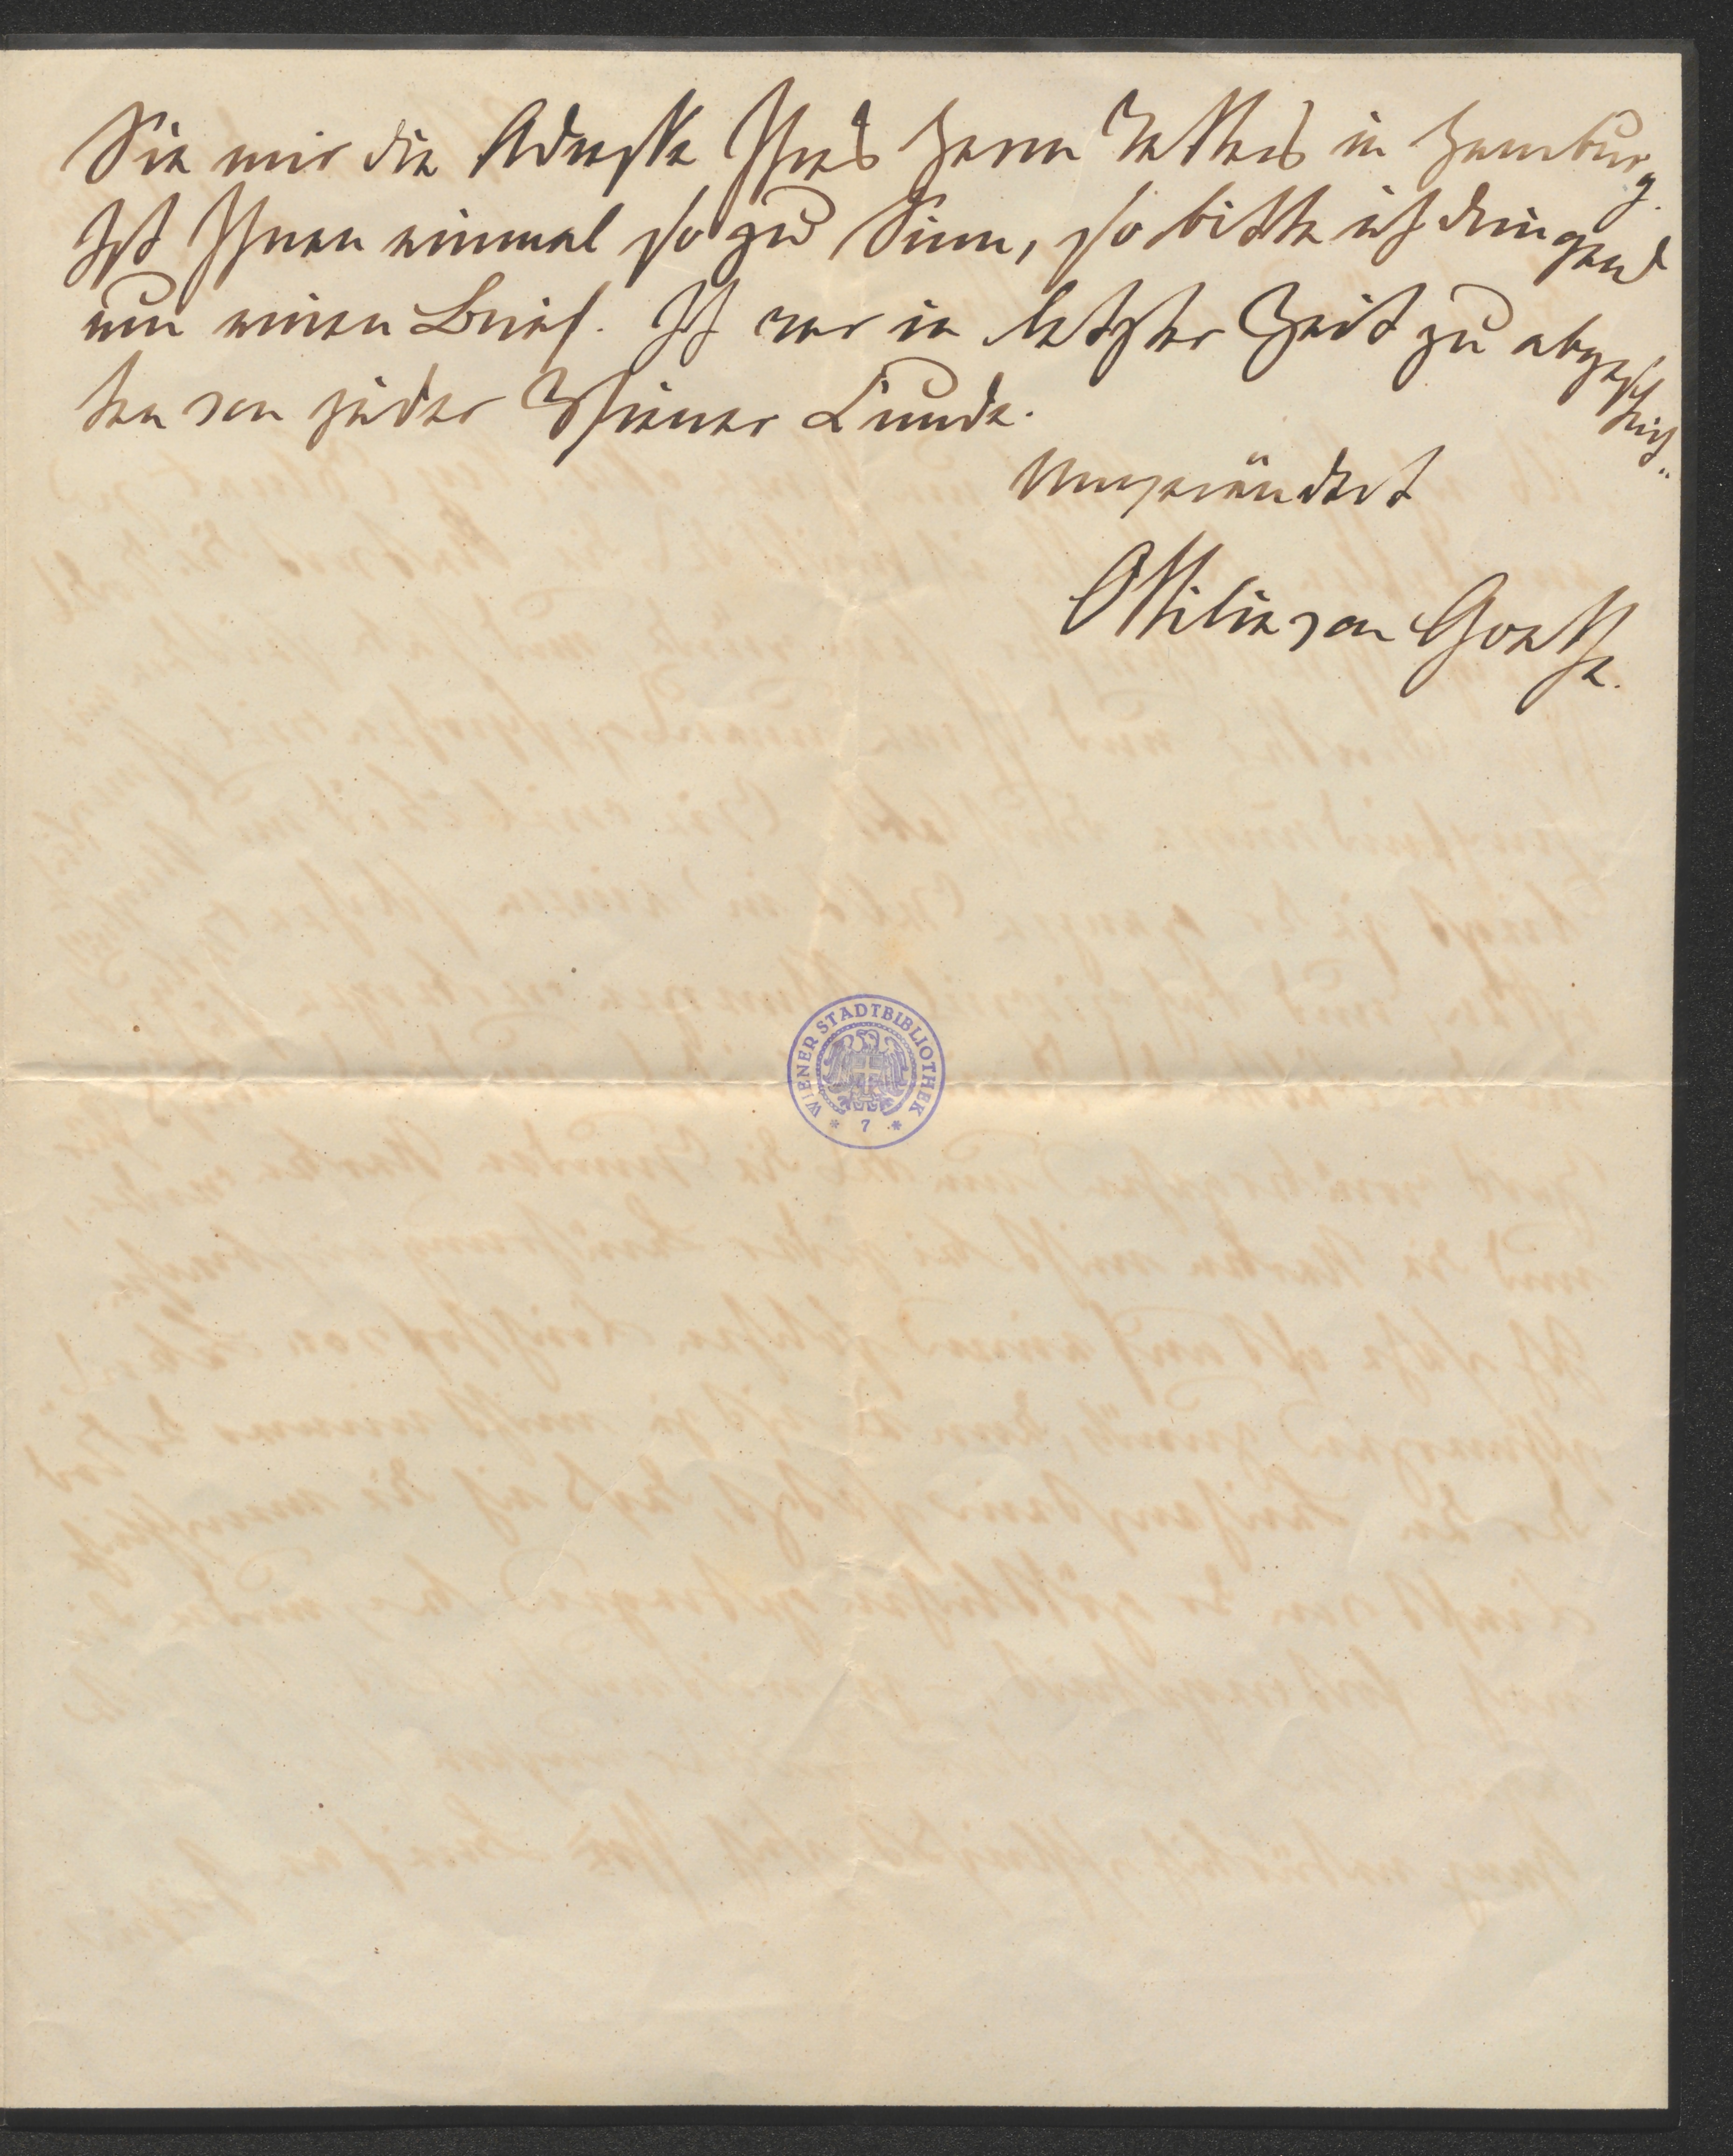 Sie mir die Adresse Ihres Herrn Vetters in Hamburg.
Ist Ihnen einmal so zu Sinn, so bitte ich dringend
um einen Brief. Ich war in letzter Zeit zu abgeschnit-
ten von jeder Wiener Kunde.
Unverändert
Ottilie von Goethe.
WIENER STADTBIBLIOTHEK
* 7 *